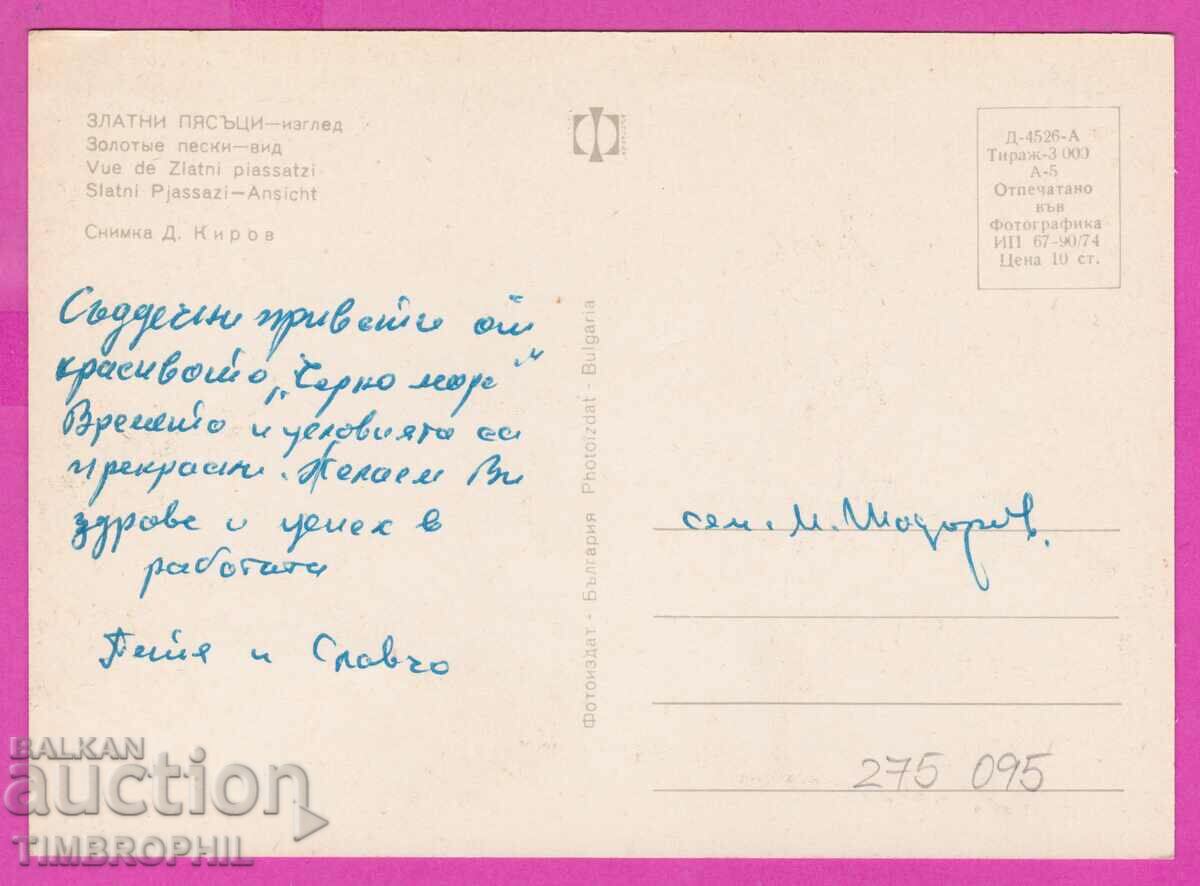 ЗЛАТНИ ПЯСЪЦИ—изглед
Золотые пески—вид
Vue de Zlatni piassatzi
Slatni Pjassazi—Ansicht
Снимка Д. Киров
Д-4526-А
Тираж-3 000
А-5
Отпечатано
във
Фотографика
ИП 67-90/74
Цена 10 ст.
Съддечни привети от
красивото „Черно море"
Времето и условията са
прекрасни. Желаем Ви
здраве и успех в
работата
Петя и Славчо
Фотоиздат - България Photoizdat - Bulgaria
сем. М. Тодоров.
275 095
BALKAN
auction
TIMBROPHIL